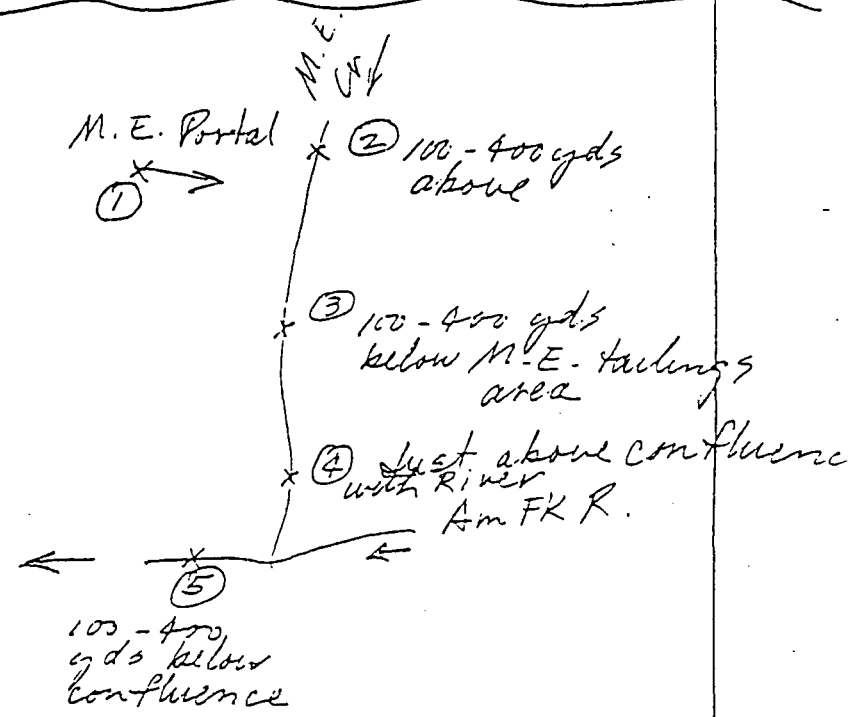 M.E.
Cr
M.E. Portal
①
② 100-400 yds
above
③ 100-400 yds
below M.E. tailings
area
④ Just above confluenc
with River
Am FK R.
⑤
100-400
yds below
confluence